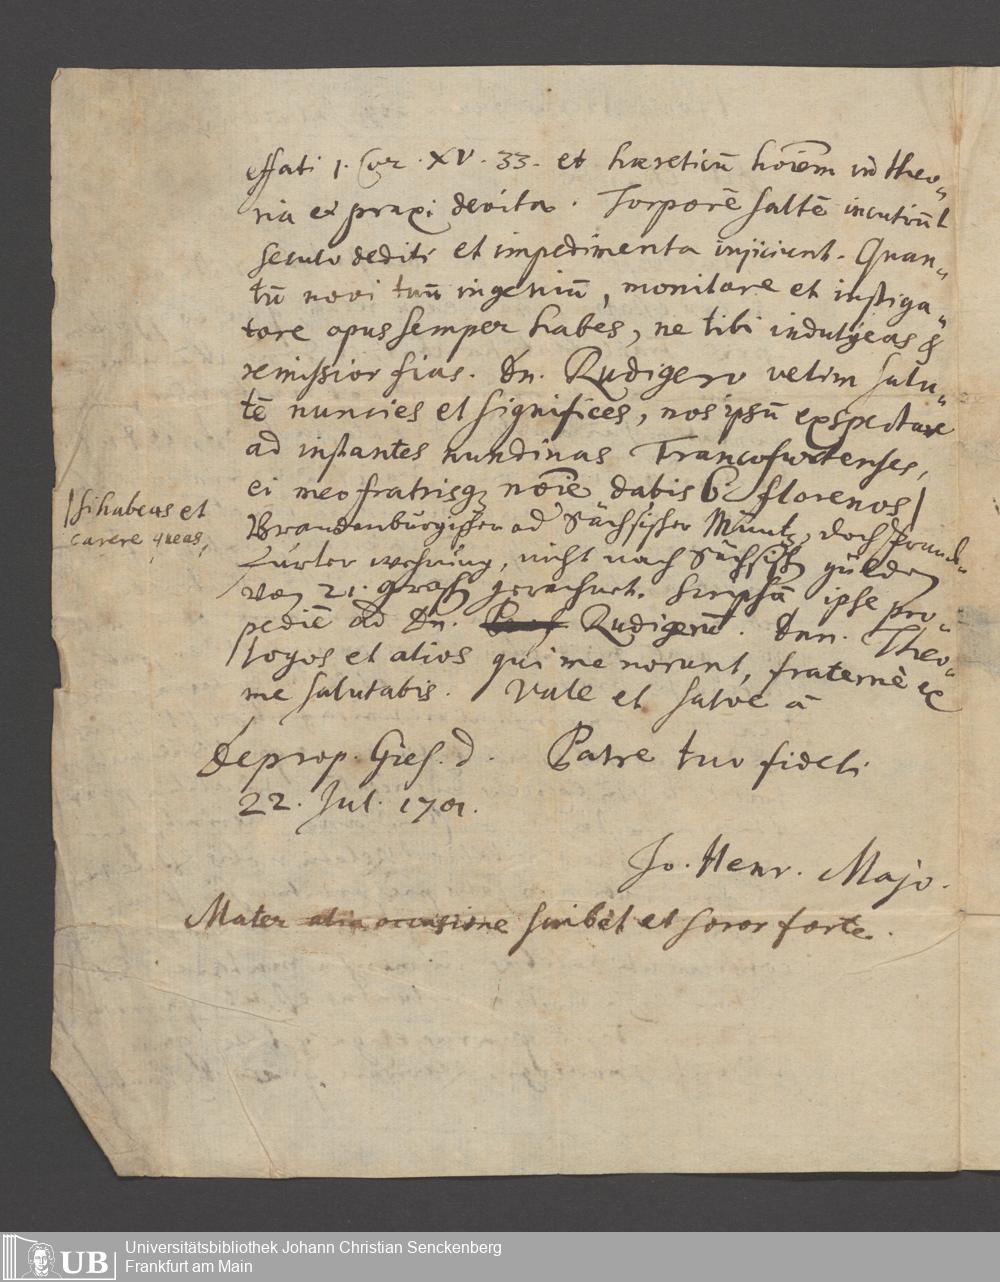 effati 1. Cor. XV. 33. et hæreticū hoīem in theo„
ria et praxi devita. Torporē saltē incutiūt
seculo dediti et impedimenta injiciunt. Quan„
tū novi tuū ingeniū, monitore et instiga„
tore opus semper habes, ne tibi indulgeas &
remissior fias. Dn. Rudigero velim salu„
tē nuncies et significes, nos ipsū exspectare
ad instantes nundinas Francofurtenses,
ei meo fratrisq; noīe dabis 6 florenos /
/ si habeas et
carere queas,
Brandenburgischer od Sächsischer Müntz, doch Franck„
furter wehrung, nicht nach Sächsisch gülden
von 21. grosch gerechnet. Scripsā ipse pro„
pediē ad Dn. Rudigerū. Dnn. Theo„
logos et alios qui me norunt, fraternè ex
me salutabis. Vale et salve à
Deprop. Gies. d. Patre tuo fideli
22. Jul. 1701.
Jo. Henr. Majo.
Mater alia occasione scribet et soror forte.
UB
Universitätsbibliothek Johann Christian Senckenberg
Frankfurt am Main